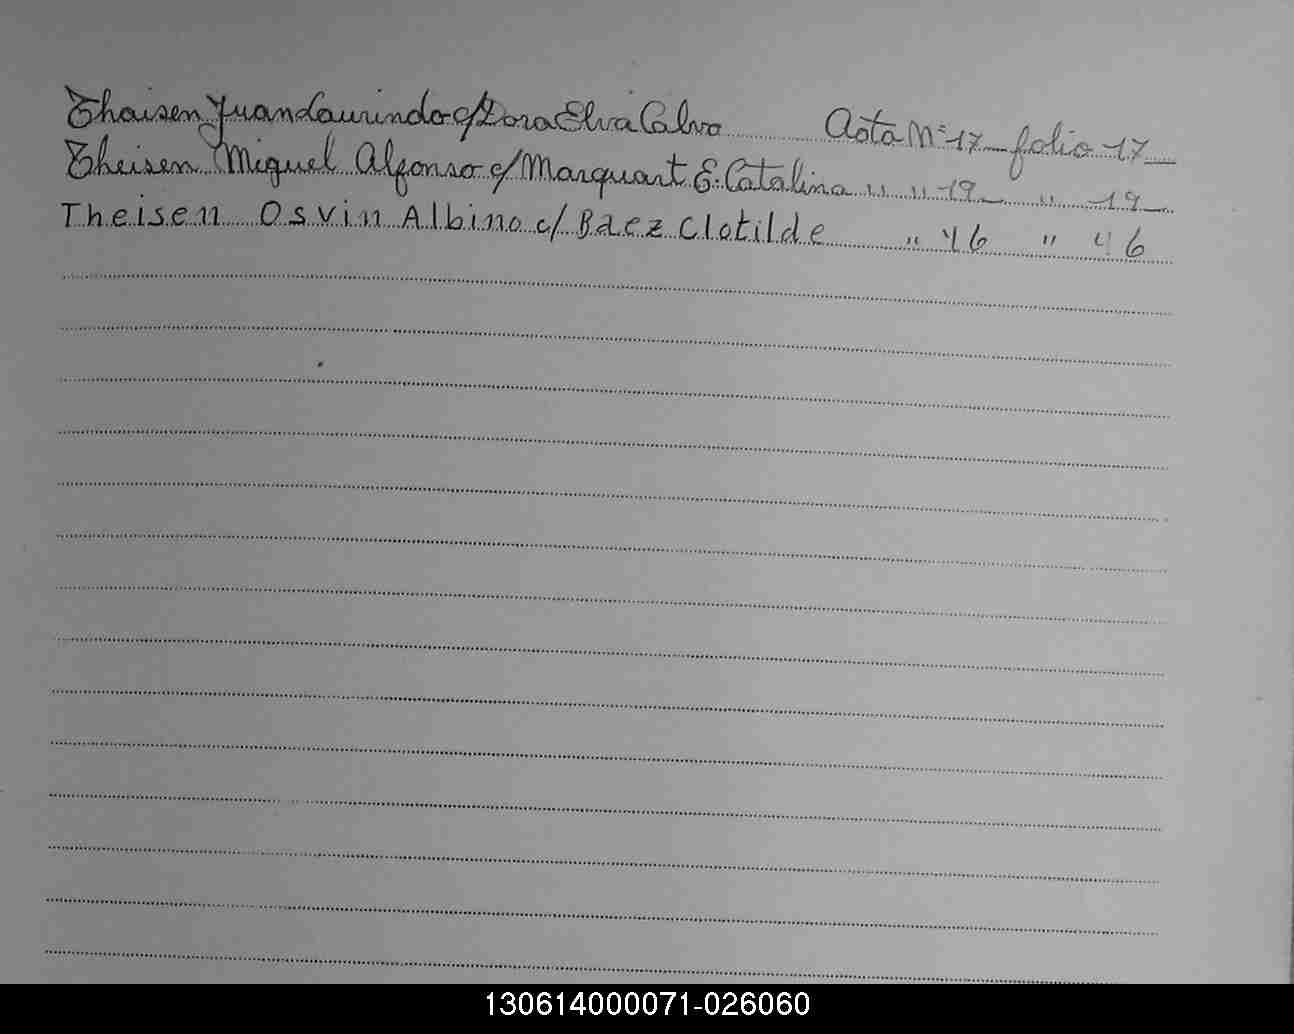 Thaisen Juan Laurindo c/ Dora Elva Calvo Acta Nº 17 folio 17
Theisen Miguel Alfonso c/ Marquart E. Catalina " " 19 " 19
Theisen Osvin Albino c/ Baez Clotilde " 46 " 46
130614000071-026060